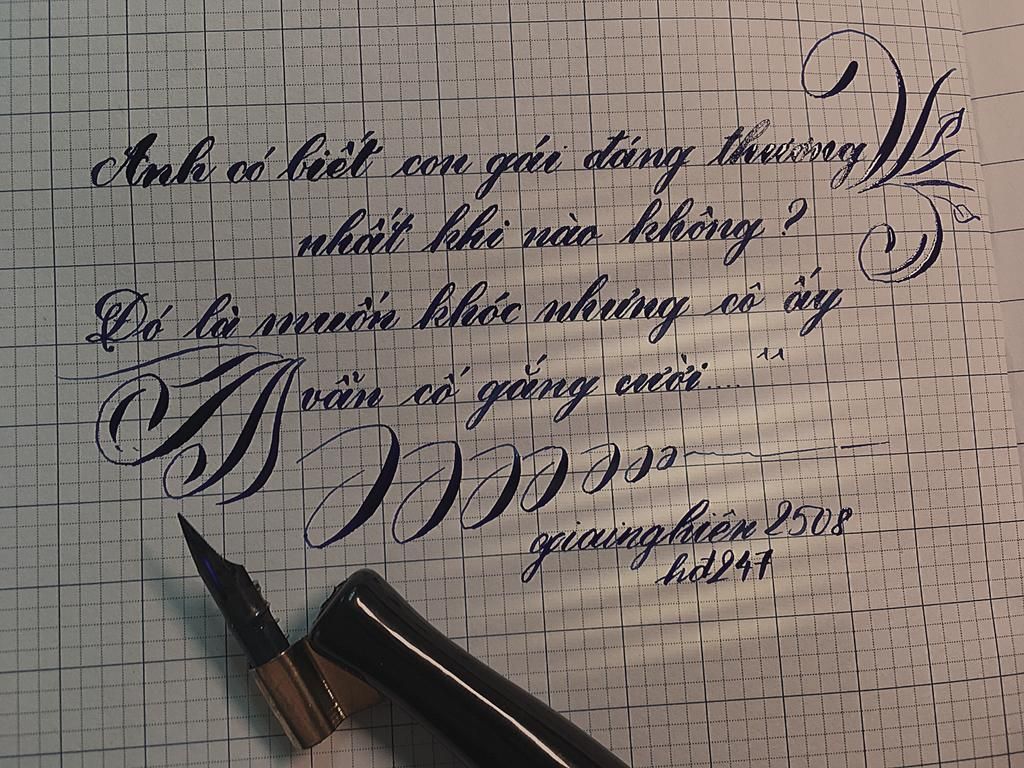 Anh có biết con gái đáng thương
nhất khi nào không ?
Đó là muốn khóc nhưng cô ấy
vẫn cố gắng cười....
giainghiên 2508
hd247